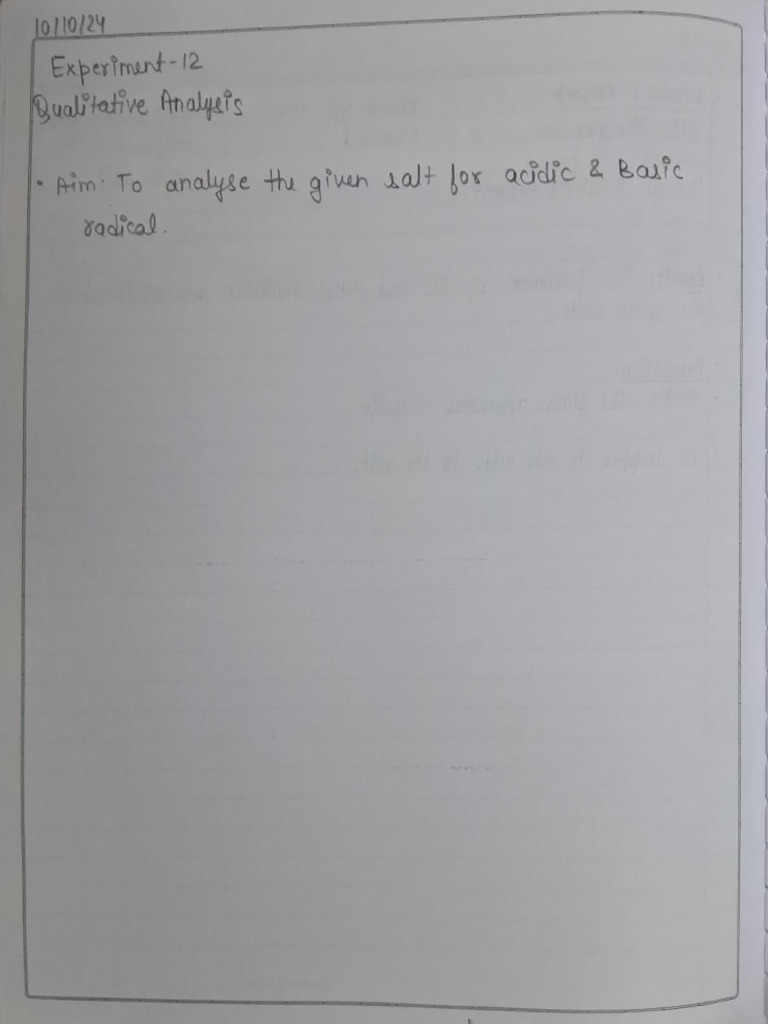 10/10/24
Experiment-12
Qualitative Analysis
• Aim: To analyse the given salt for acidic & Basic
radical.